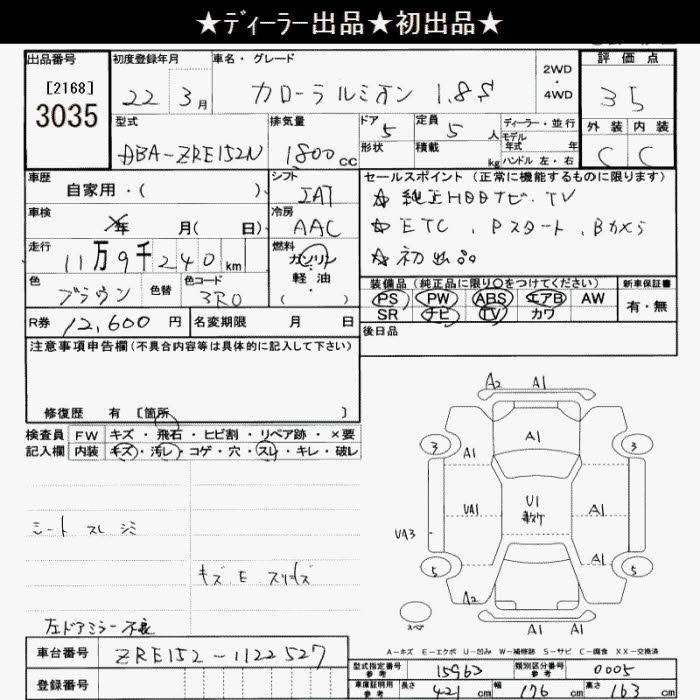 ★ディーラー出品★初出品★
出品番号 初度登録年月 車名・グレード 2WD・4WD 評価点
[2168]
3035
22 3月 カローラルミオン 1.8S 35
型式 排気量 ドア 定員 ディーラー・並行 外装 内装
ABA-ZRE152N 1800cc 5 5人 モデル年式 年 C C
形状 積載 kg ハンドル 左・右
車歴 自家用・( ) シフト IAT
セールスポイント (正常に機能するものに限ります)
☆ 純正HDDナビ、TV
車検 年 月( 日) 冷房 AAC
☆ ETC、Pスタート、Bカメラ
走行 11万9千240km 燃料 ガソリン・軽油・( )
☆ 初出品
色 ブラウン 色替 色コード 3R0
装備品 (純正品に限り○をつけてください) 新車保証書
PS PW ABS エアB AW 有・無
SR ナビ TV カワ
R券 12,600円 名変期限 月 日
後日品
注意事項申告欄(不具合内容等は具体的に記入して下さい)
修復歴 有 [箇所 ]
検査員 FW キズ・飛石・ヒビ割・リペア跡・×要
記入欄 内装 キズ・汚レ・コゲ・穴・スレ・キレ・破レ
A2 A1
3 A1 3
A1
UA1 U1 A1
UA3
A1
5 5
A2 A1
スペア A1 A1
シート スレ シミ
キズ E スリキズ
左ドアミラー不良
A-キズ E-エクボ U-凹み W-補修跡 S-サビ C-腐食 XX-交換済
車台番号 ZRE152-1122527
登録番号
型式指定番号 参考 15963 類別区分番号 参考 0005
車庫証明用 参考 長さ 421cm 幅 176cm 高さ 163cm